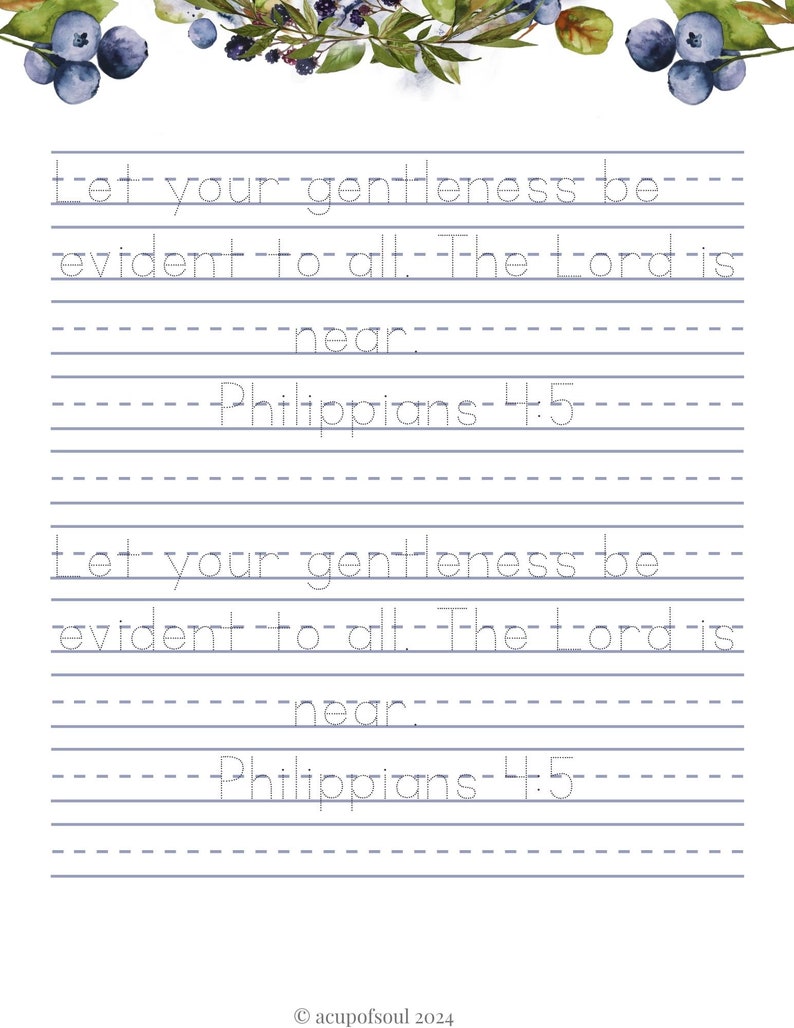 Let your gentleness be
evident to all. The Lord is
near.
Philippians 4:5
Let your gentleness be
evident to all. The Lord is
near.
Philippians 4:5
© acupofsoul 2024